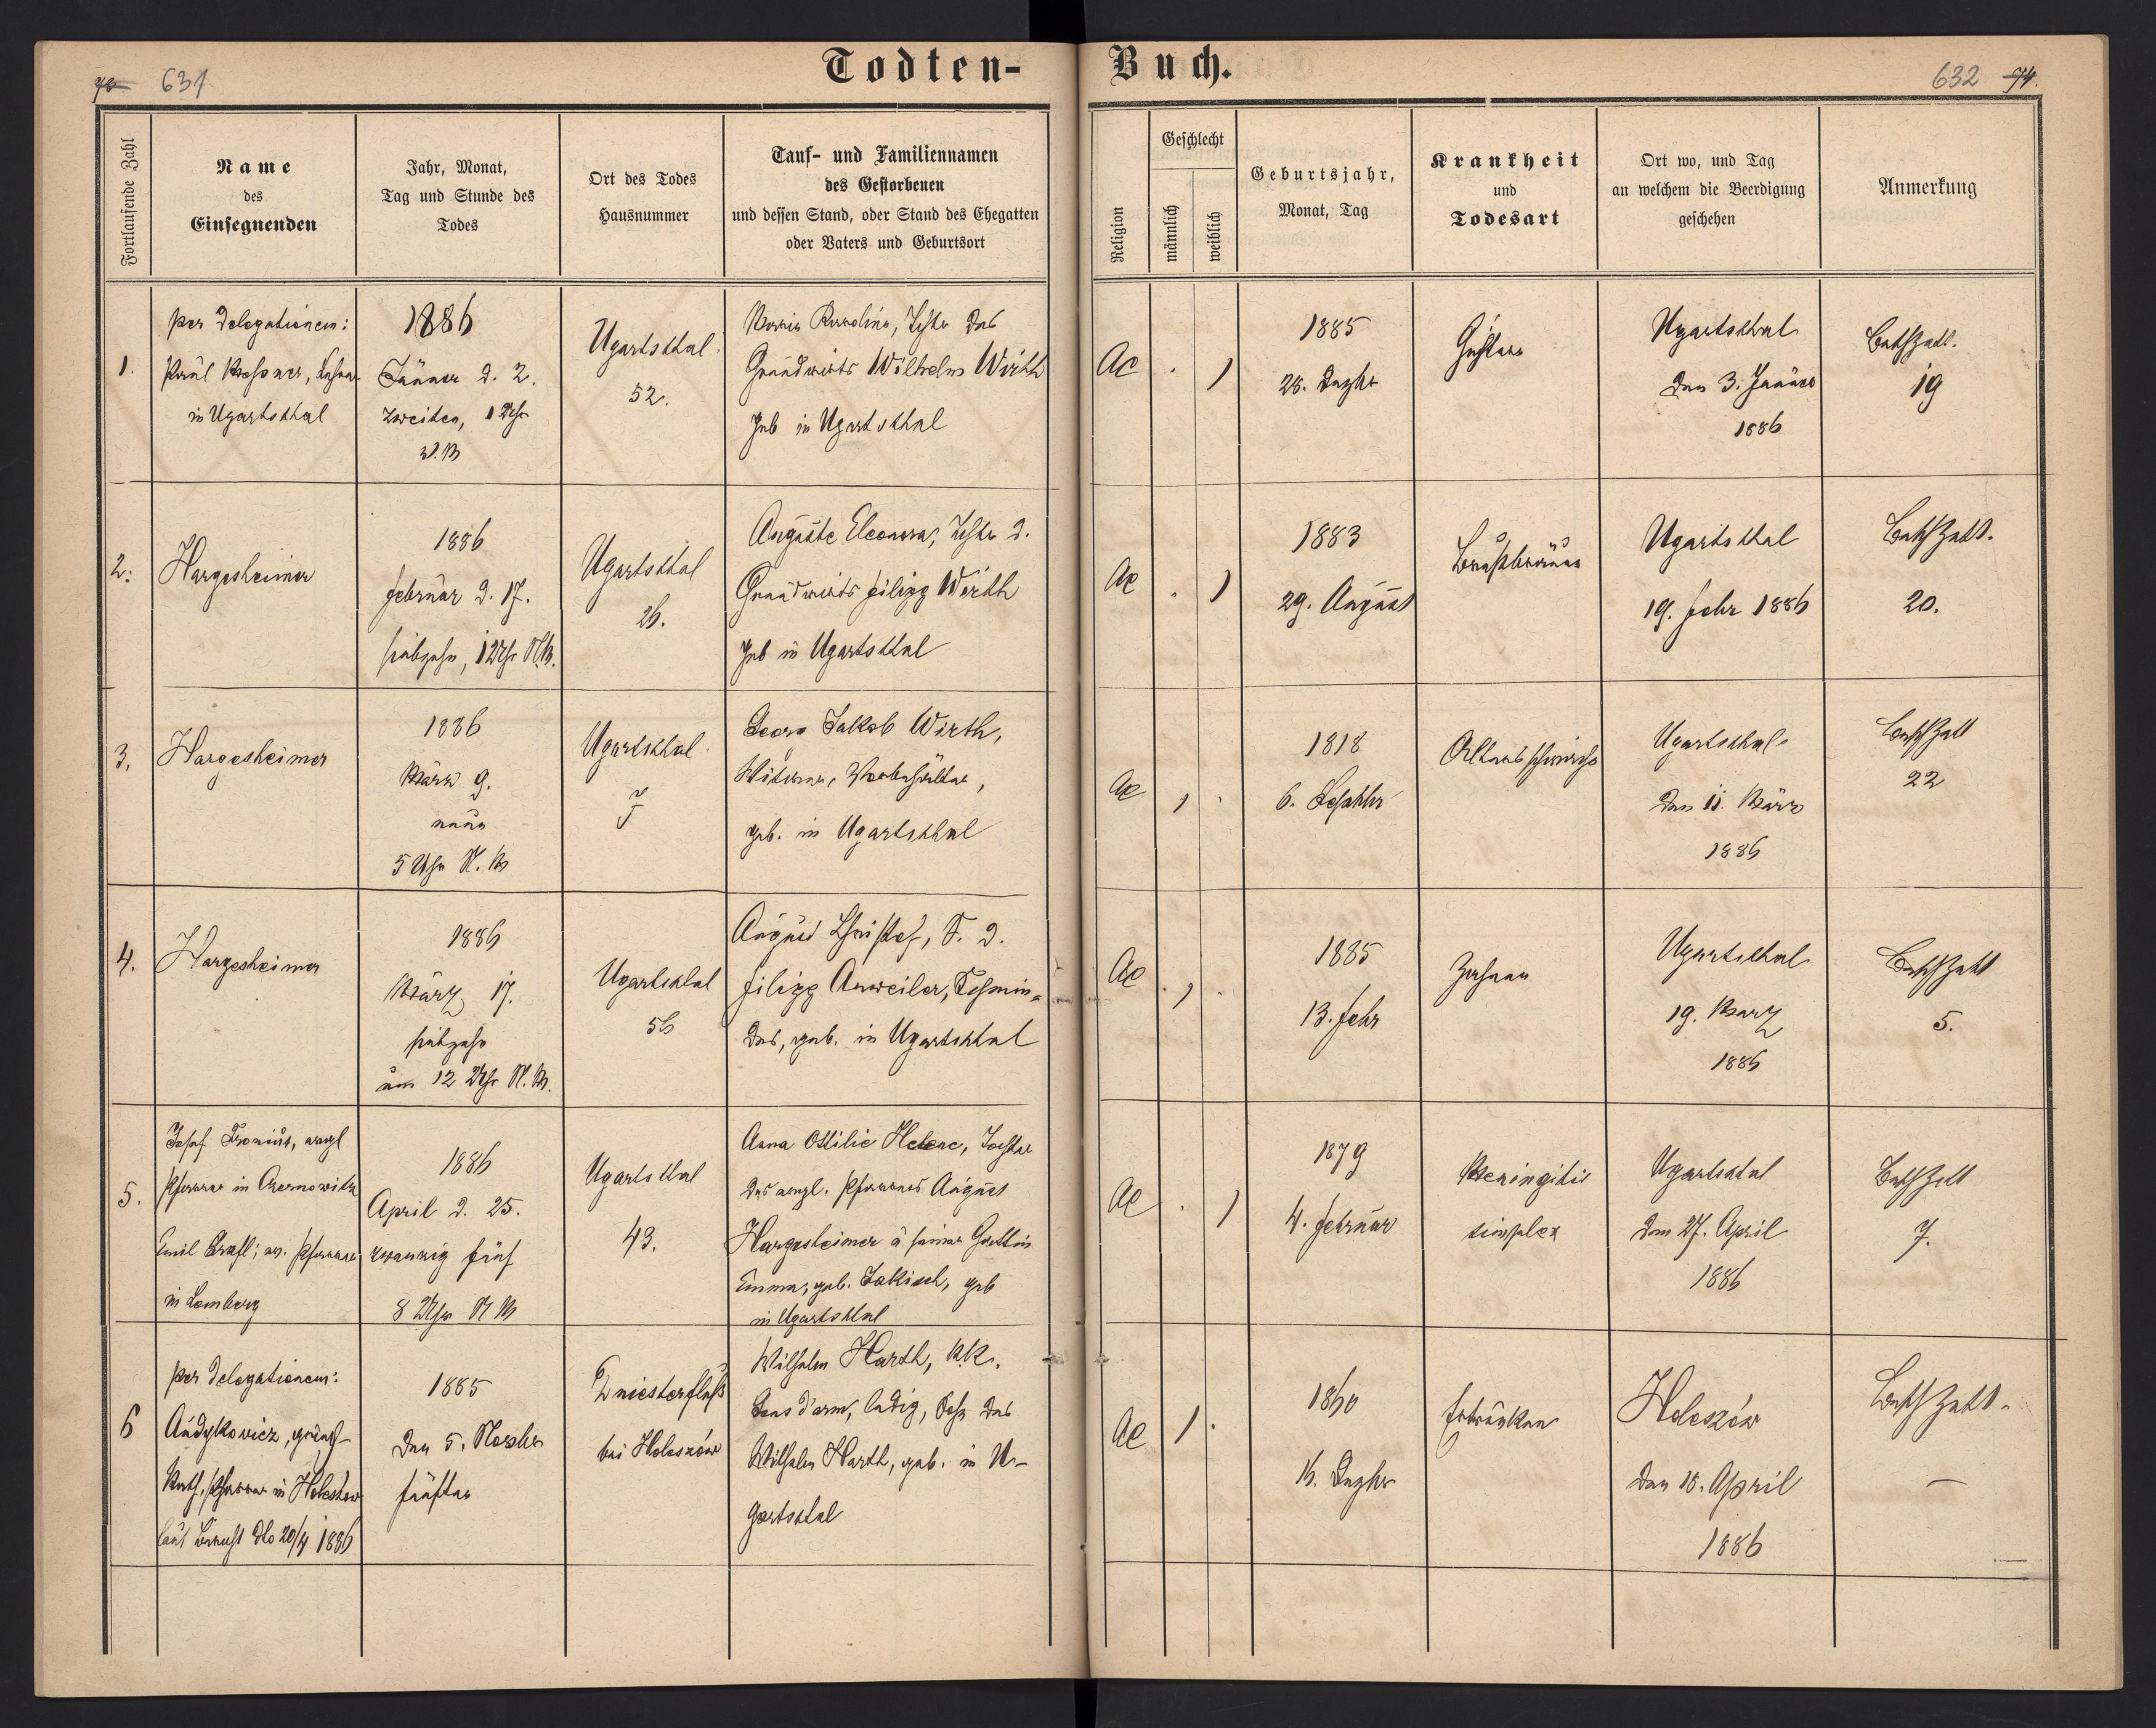 Todten-Buch.
631
632 74.
Fortlaufende Zahl
Name
des
Einsegnenden
Jahr, Monat,
Tag und Stunde des
Todes
Ort des Todes
Hausnummer
Tauf- und Familiennamen
des Gestorbenen
und dessen Stand, oder Stand des Ehegatten
oder Vaters und Geburtsort
Religion
Geschlecht
männlich
weiblich
Geburtsjahr,
Monat, Tag
Krankheit
und
Todesart
Ort wo, und Tag
an welchem die Beerdigung
geschehen
Anmerkung
1.
per Delegationem:
Lehrer
in Ugartsthal
1886
Jänner d. 2.
zweiten, 1 Uhr
Ugartsthal
52.
Maria Karolina, Tchtr des
Grundwirts Wilhelm Wirth
geb in Ugartsthal
AC
1885
Dezbr
Ugartsthal
den 3. Jänner
1886
19
2.
Hargesheimer
1886
Februar d. 17.
siebzehn, 12 Uhr N.M.
Ugartsthal
26.
Auguste Eleonora, Tchtr d.
Grundwirts Filipp Wirth
geb in Ugartsthal
AC
1883
29. August
Brustbräune
Ugartsthal
19. Febr 1886
20.
3.
Hargesheimer
1886
März 9.
neun
5 Uhr N. M
Ugartsthal
Georg Jakob Wirth,
Witwer,
geb. in Ugartsthal
AC
1818
6. Septbr
Altersschwäche
Ugartsthal
den 11. März
1886
22
4.
Hargesheimer
1886
März 17.
siebzehn
um 12 Uhr N. M.
Ugartsthal
56
August Christof, S. d.
Filipp Anweiler, Schmie-
des, geb. in Ugartsthal
AC
1885
13. Febr
Zahnen
Ugartsthal
19. März
1886
5.
5.
Josef Fronius, evngl
Pfarrer in Czernowitz
Emil ev. Pfarrer
in Lemberg
1886
April d. 25.
zwanzig fünf
8 Uhr N M
Ugartsthal
43.
Anna Ottilie Helene, Tochter
des evngl. Pfarrers August
Hargesheimer u seiner Gattin
Emma, geb. Jakisch, geb
in Ugartsthal
AC
1879
4. Februar
Meningitis
simplex
Ugartsthal
den 27. April
1886
7.
6
per Delegationem:
Andykovicz, griech-
kath. Pfarrer in Holeszow
laut Bericht dto 20/4 1886
1885
den 5. Novbr
fünften
Dniesterfluß
bei Holeszów
Wilhelm Harth, k.k.
Gensdarm, ledig, Sohn des
Wilhelm Harth, geb. in U-
gartsthal
AC
1860
16. Dezbr
Ertrunken
Holeszów
April
1886
—